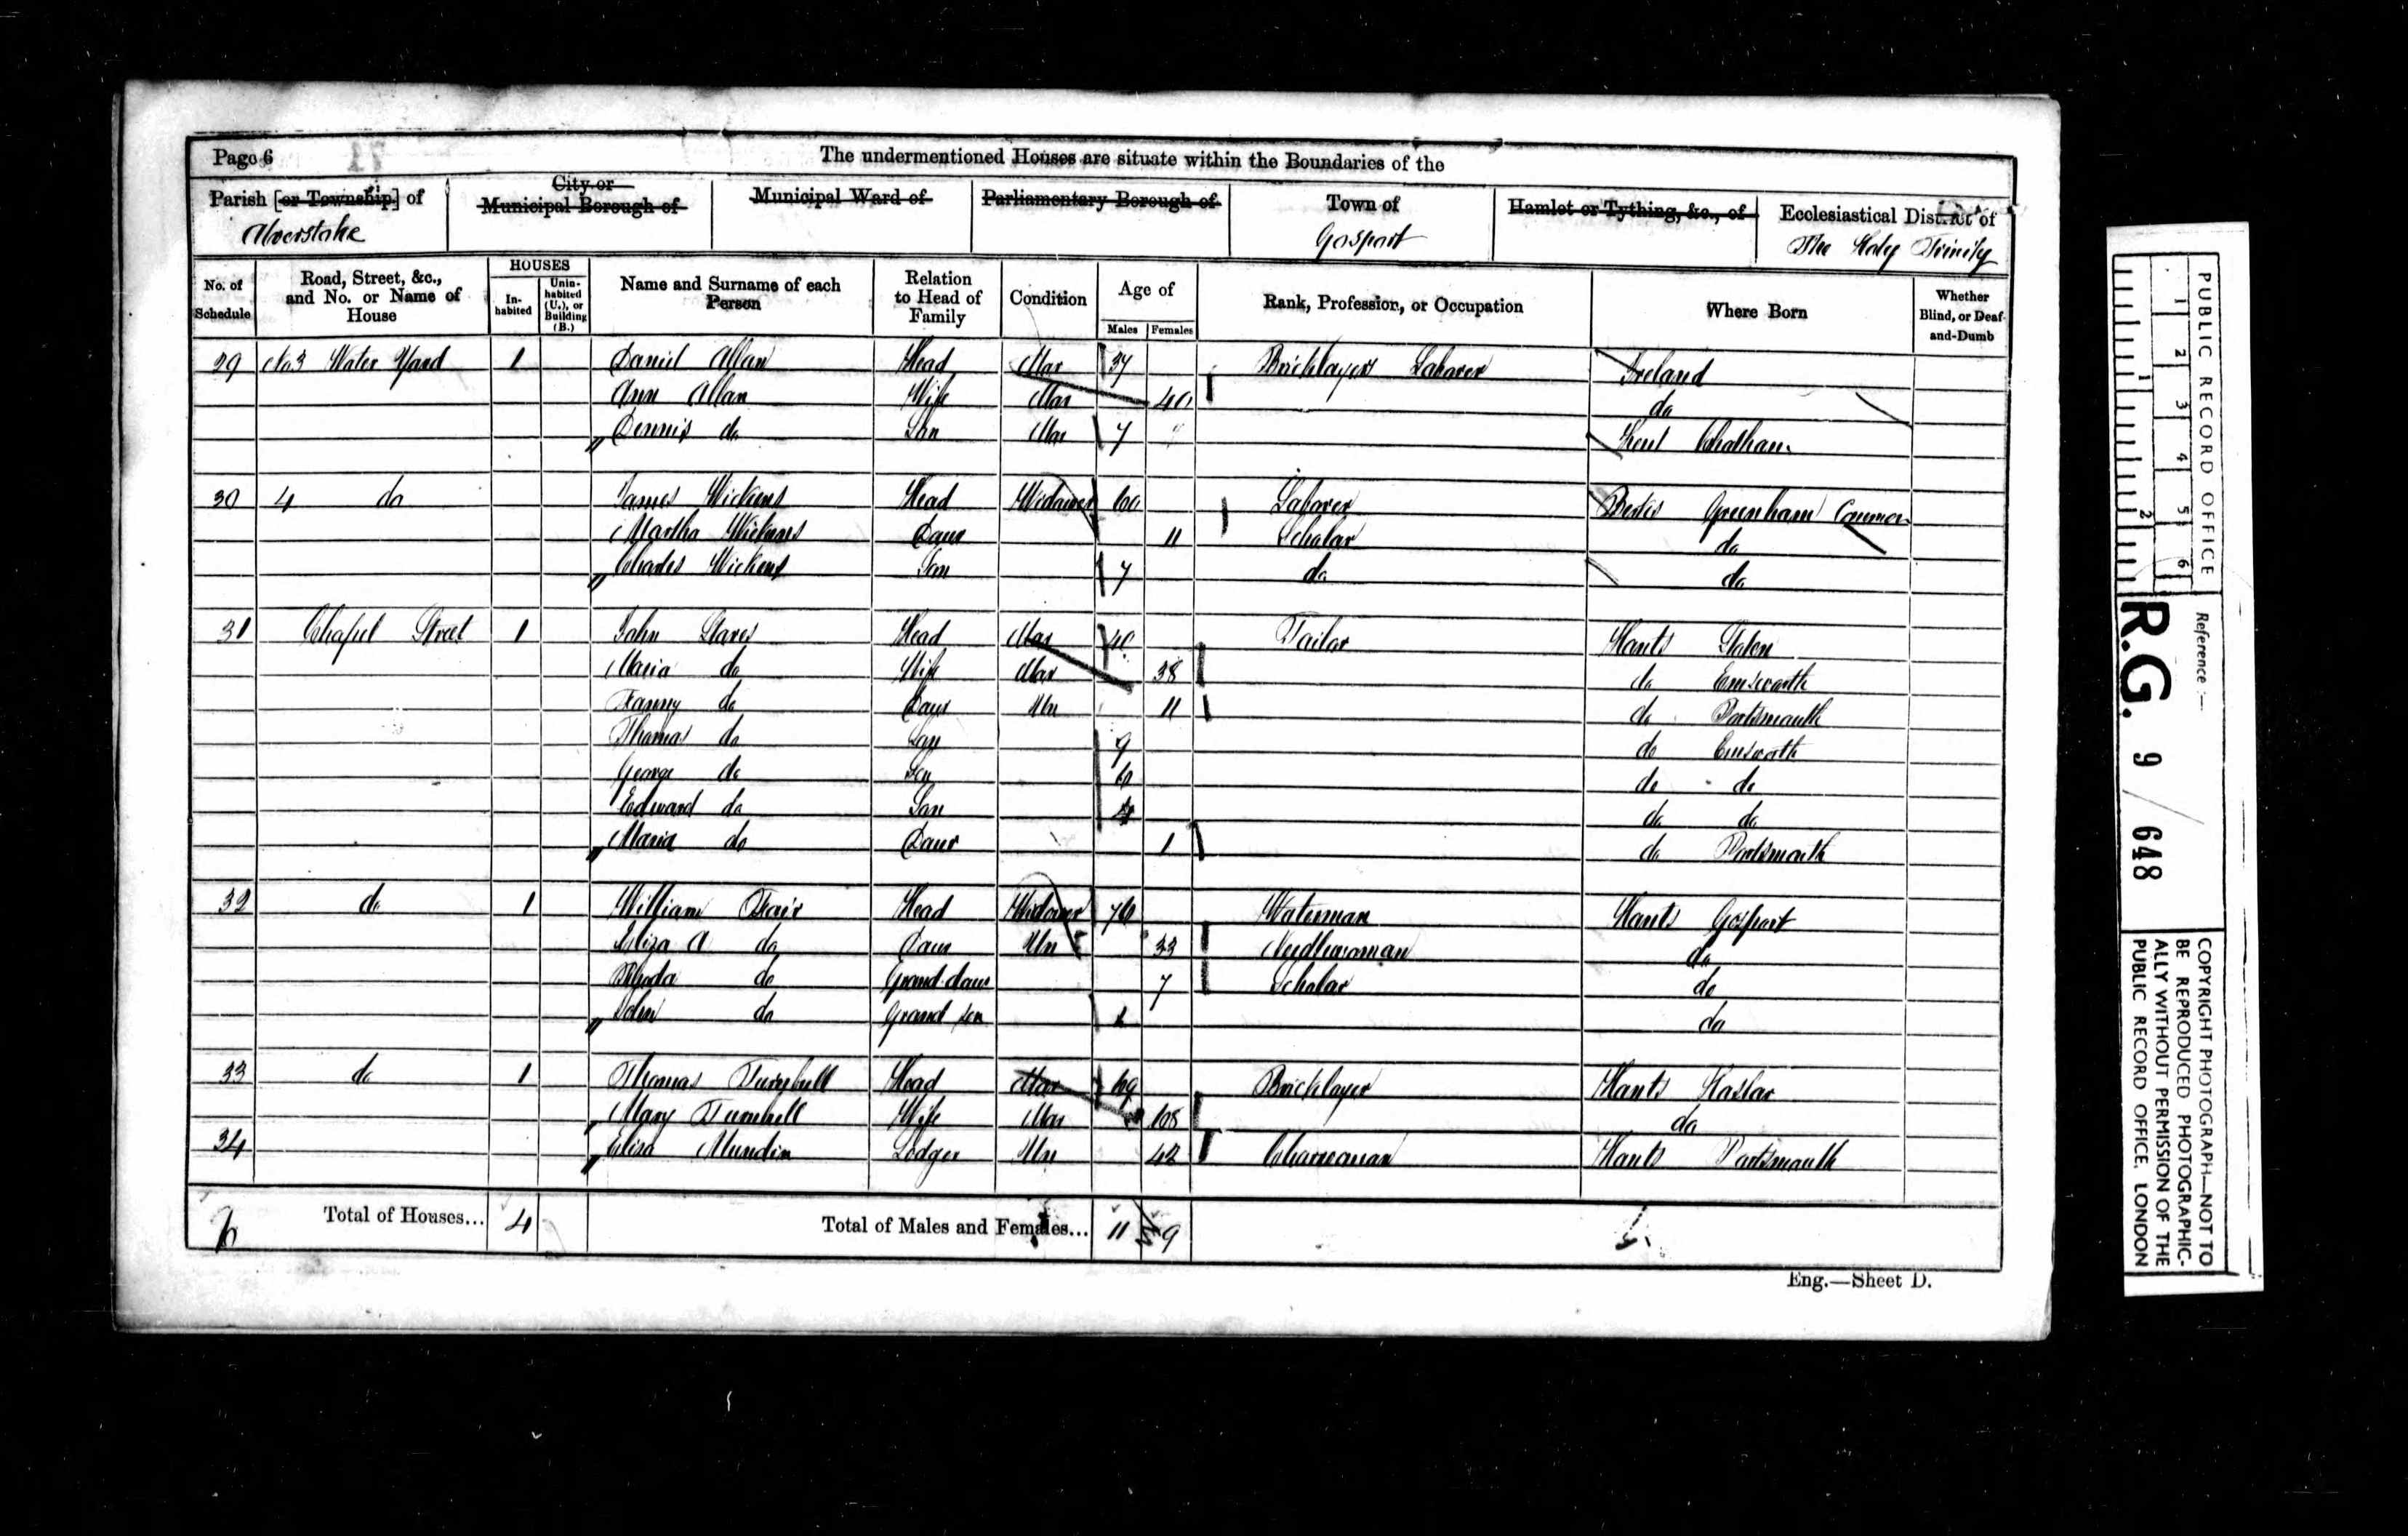 Page 6
The undermentioned Houses are situate within the Boundaries of the
Parish [or Township] of Alverstoke
City or Municipal Borough of
Municipal Ward of
Parliamentary Borough of
Town of Gosport
Hamlet or Tything, &c., of
Ecclesiastical District of The Holy Trinity
No. of Schedule
Road, Street, &c., and No. or Name of House
HOUSES
In-habited
Unin-habited (U.), or Building (B.)
Name and Surname of each Person
Relation to Head of Family
Condition
Age of
Males Females
Rank, Profession, or Occupation
Where Born
Whether Blind, or Deaf-and-Dumb
29 No 3 Water Yard 1 Daniel Allan Head Mar 37 Bricklayers Laborer Ireland
Ann Allan Wife Mar 40 do
" Dennis do Son Mar 7 Kent Chatham
30 4 do James Wickens Head Widower 60 Laborer Berks Greenham Common
Martha Wickens Daur 11 Scholar do
" Charles Wickens Son 7 do do
31 Chapel Street 1 John Stares Head Mar 40 Tailor Hants
Maria do Wife Mar 38 do Emsworth
Fanny do Daur Un 11 do Portsmouth
Thomas do Son 9 do Emsworth
George do Son 6 do do
Edward do Son 4 do do
" Maria do Daur 1 do Portsmouth
32 do 1 William Fair Head Widower 76 Waterman Hants Gosport
Eliza A do Daur Un 33 Needlewoman do
Rhoda do Grand daur 7 Scholar do
" John do Grand son 1 do
33 do 1 Thomas Turnbull Head Mar 69 Bricklayer Hants Haslar
" Mary Turnbull Wife Mar 68 do
34 " Eliza Mundin Lodger Un 42 Charwoman Hants Portsmouth
6 Total of Houses... 4 Total of Males and Females... 11 9
Eng.—Sheet D.
PUBLIC RECORD OFFICE
1 2 3 4 5 6
1 2
Reference:—
R.G. 9 / 648
COPYRIGHT PHOTOGRAPH—NOT TO
BE REPRODUCED PHOTOGRAPHIC-
ALLY WITHOUT PERMISSION OF THE
PUBLIC RECORD OFFICE, LONDON